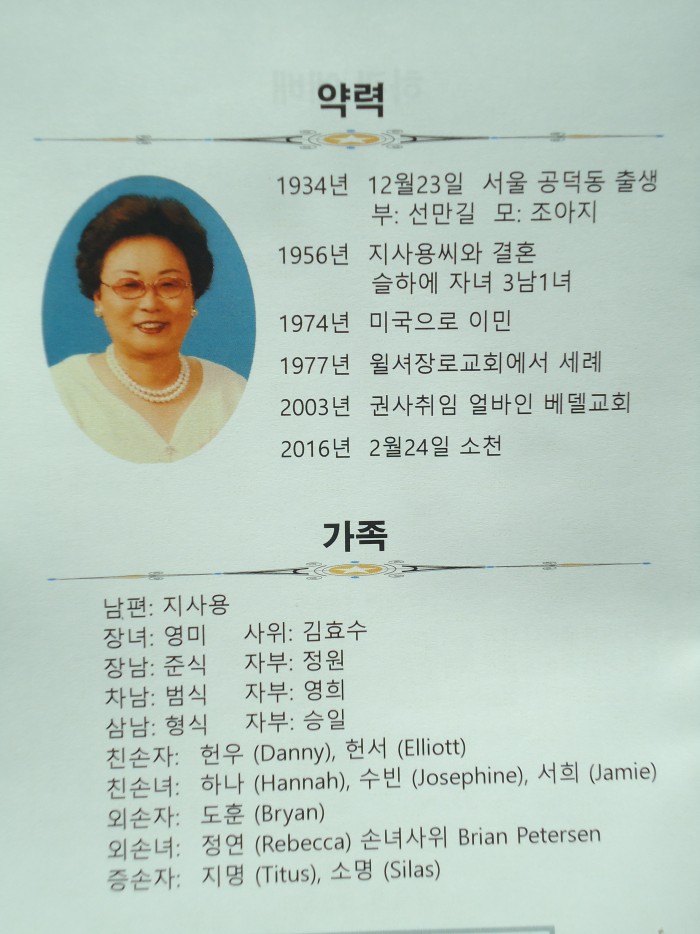 약력
1934년 12월23일 서울 공덕동 출생
부: 선만길 모: 조아지
1956년 지사용씨와 결혼
슬하에 자녀 3남1녀
1974년 미국으로 이민
1977년 윌셔장로교회에서 세례
2003년 권사취임 얼바인 베델교회
2016년 2월24일 소천
가족
남편: 지사용
장녀: 영미 사위: 김효수
장남: 준식 자부: 정원
차남: 범식 자부: 영희
삼남: 형식 자부: 승일
친손자: 헌우 (Danny), 헌서 (Elliott)
친손녀: 하나 (Hannah), 수빈 (Josephine), 서희 (Jamie)
외손자: 도훈 (Bryan)
외손녀: 정연 (Rebecca) 손녀사위 Brian Petersen
증손자: 지명 (Titus), 소명 (Silas)